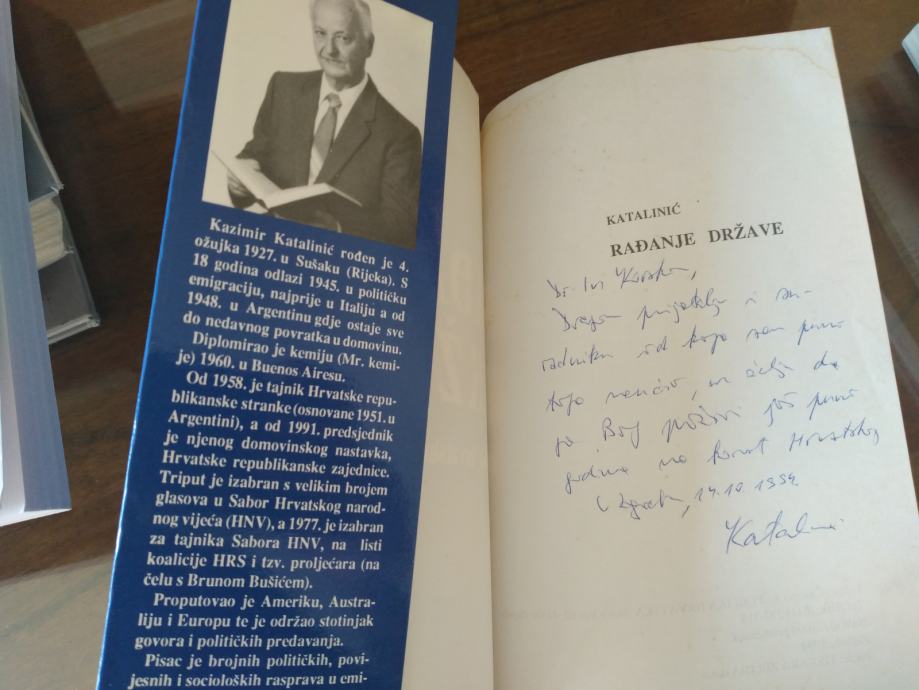 Kazimir Katalinić rođen je 4.
ožujka 1927. u Sušaku (Rijeka). S
18 godina odlazi 1945. u političku
emigraciju, najprije u Italiju a od
1948. u Argentinu gdje ostaje sve
do nedavnog povratka u domovinu.
Diplomirao je kemiju (Mr. kemi-
je) 1960. u Buenos Airesu.
Od 1958. je tajnik Hrvatske repu-
blikanske stranke (osnovane 1951. u
Argentini), a od 1991. predsjednik
je njenog domovinskog nastavka,
Hrvatske republikanske zajednice.
Triput je izabran s velikim brojem
glasova u Sabor Hrvatskog narod-
nog vijeća (HNV), a 1977. je izabran
za tajnika Sabora HNV, na listi
koalicije HRS i tzv. proljećara (na
čelu s Brunom Bušićem).
Proputovao je Ameriku, Austra-
liju i Europu te je održao stotinjak
govora i političkih predavanja.
Pisac je brojnih političkih, povi-
jesnih i socioloških rasprava u emi-
KATALINIĆ
RAĐANJE DRŽAVE
Dr. Ivi
Dragom prijatelju i su-
radniku od koga sam puno
toga naučio, uz želju da
ga Bog poživi još puno
godina na korist Hrvatskoj
U Zagrebu, 14.10. 1994.
Katalinić